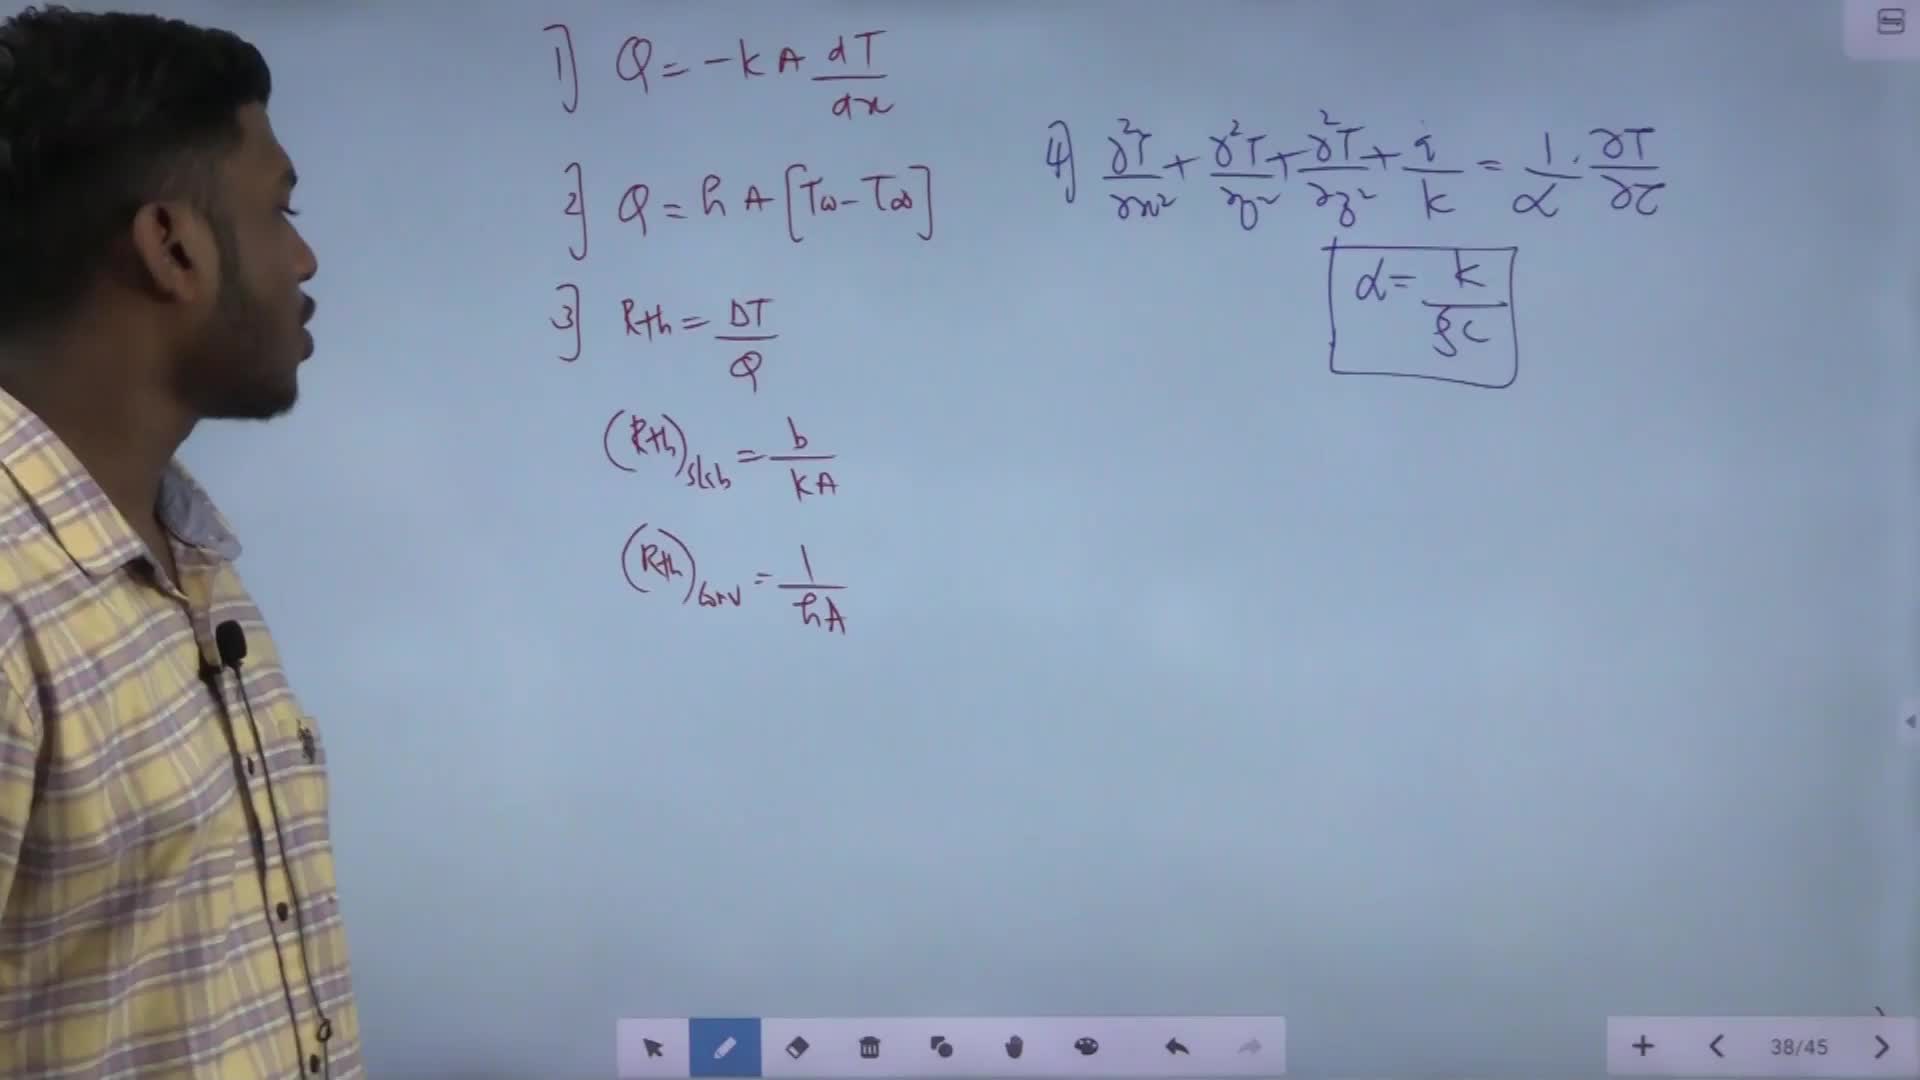 1] Q = -k A dT/dx
2] Q = h A [Tω - T∞]
3] Rth = ΔT/Q
(Rth)slab = b/kA
(Rth)conv = 1/hA
4] ∂²T/∂x² + ∂²T/∂y² + ∂²T/∂z² + q̇/k = 1/α · ∂T/∂τ
α = k/ρc
38/45